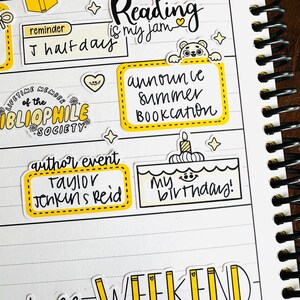 Reading
is my jam
reminder
J half day
announce
summer
bookcation
LIFETIME MEMBER
of the
BIBLIOPHILE
SOCIETY
author event
Taylor
Jenkins Reid
my
birthday!
WEEKEND